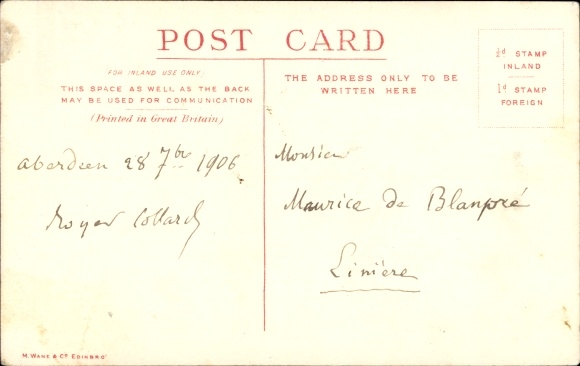 POST CARD
(FOR INLAND USE ONLY)
THIS SPACE AS WELL AS THE BACK
MAY BE USED FOR COMMUNICATION
(Printed in Great Britain)
THE ADDRESS ONLY TO BE
WRITTEN HERE
½d STAMP
INLAND
1d STAMP
FOREIGN
Aberdeen 28 7bre 1906.
Royer Collard
Monsieur
Maurice de Blanpré
Linière
M. WANE & Co EDINBRO'